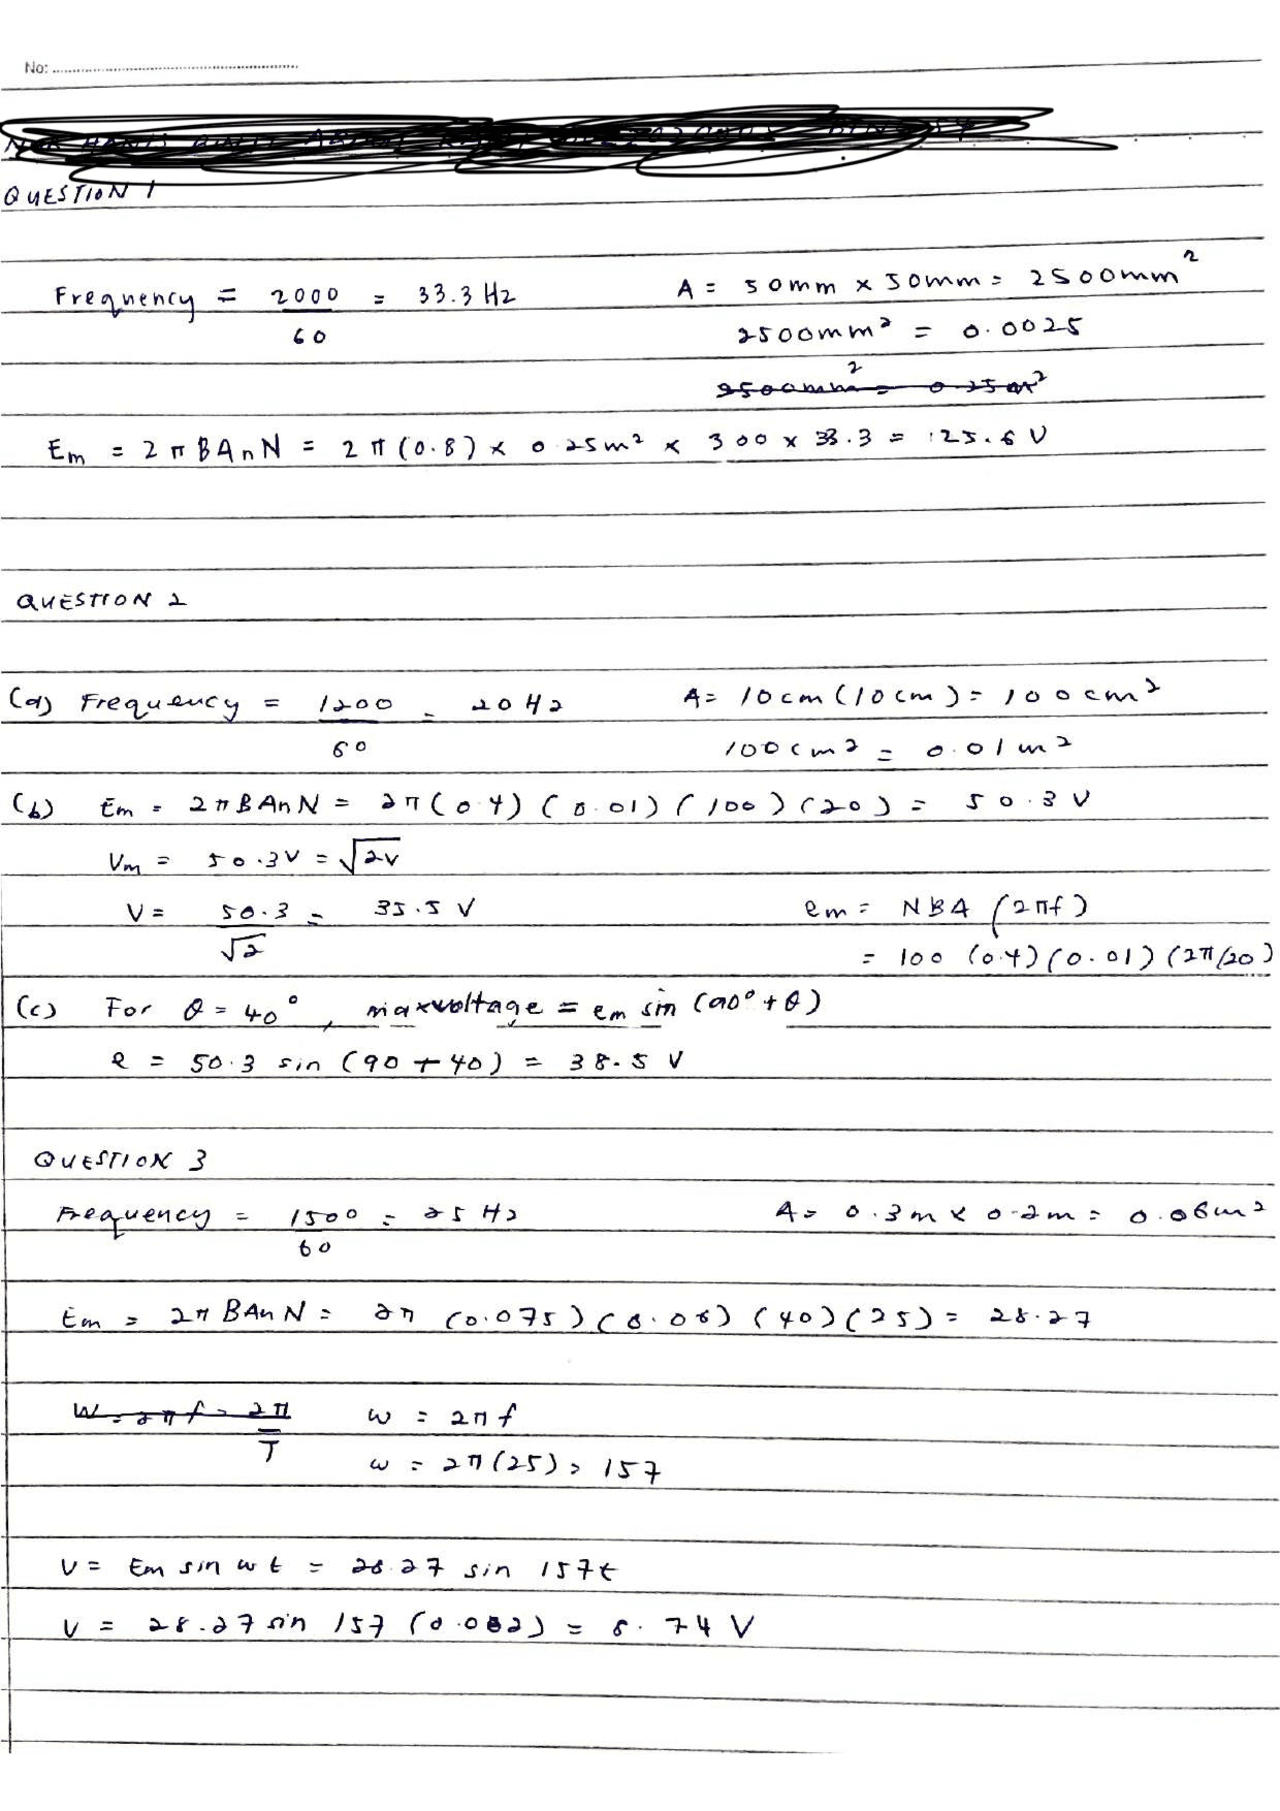 No:
QUESTION 1
Frequency = 2000/60 = 33.3 Hz
A = 50mm x 50mm = 2500mm²
2500mm² = 0.0025
2500mm² = 0.25m²
Em = 2πBAnN = 2π(0.8) x 0.25m² x 300 x 33.3 = 125.6 V
QUESTION 2
(a) Frequency = 1200/60 = 20 Hz
A = 10cm(10cm) = 100cm²
100cm² = 0.01m²
(b) Em = 2πBAnN = 2π(0.4)(0.01)(100)(20) = 50.3 V
Vm = 50.3V = √2V
V = 50.3/√2 = 35.5 V
em = NBA(2πf)
= 100 (0.4)(0.01)(2π/20)
(c) For θ = 40°, max voltage = em sin (90° + θ)
e = 50.3 sin (90 + 40) = 38.5 V
QUESTION 3
Frequency = 1500/60 = 25 Hz
A = 0.3m x 0.2m = 0.06m²
Em = 2πBAnN = 2π (0.075)(0.06)(40)(25) = 28.27
W = 2πf = 2π/T
w = 2πf
w = 2π(25) = 157
V = Em sin wt = 28.27 sin 157t
V = 28.27 sin 157 (0.002) = 8.74 V